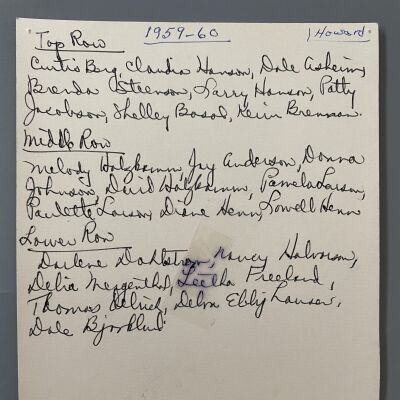 Top Row 1959-60 (Howard)
Curtis Berg, Claudia Hanson, Dale Asheim,
Brenda Steenson, Larry Hanson, Patty
Jacobson, Shelley Basol, Kevin Brennan.
Middle Row
Melody Holzkamm, Jay Anderson, Donna
Johnson, David Holzkamm, Pamela Larson,
Paulette Larson, Diane Henn, Lowell Henn
Lower Row
Darlene Dahlstrom, Nancy Halvorson,
Debia Mergenthal, Leetha Freeland,
Thomas Debra Ebby
Dale Bjorklund